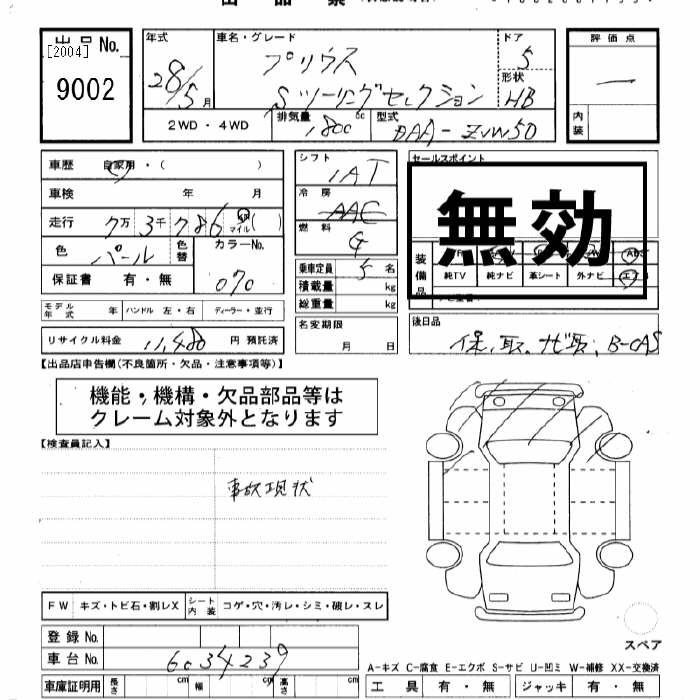 出品票
[2004]
出品 No.
9002
年式
28/5 月
車名・グレード
プリウス
Sツーリングセレクション
ドア
5
形状
HB
評価点
—
内装
2WD・4WD
排気量
1800 cc
型式
DAA-ZVW50
車歴 自家用・( )
車検 年 月
走行 7万3千786 km マイル ( )
色 パール 色替 カラーNo.
070
保証書 有・無
モデル年式 年 ハンドル 左・右 ディーラー・並行
リサイクル料金 11,480 円 預託済
シフト
IAT
冷房
AAC
燃料
G
乗車定員 5 名
積載量 kg
総重量 kg
名変期限
月 日
セールスポイント
無効
装備品
純TV 純ナビ 革シート 外ナビ エアB
後日品
保、取、ナビ取、B-CAS
【出品店申告欄(不良箇所・欠品・注意事項等)】
機能・機構・欠品部品等は
クレーム対象外となります
【検査員記入】
事故現状
FW キズ・トビ石・割レX シート内装 コゲ・穴・汚レ・シミ・破レ・スレ
登録 No.
車台 No. 6034239
車庫証明用 長さ cm 幅 cm 高さ cm
スペア
A-キズ C-腐食 E-エクボ S-サビ U-凹ミ W-補修 XX-交換済
工具 有・無 ジャッキ 有・無